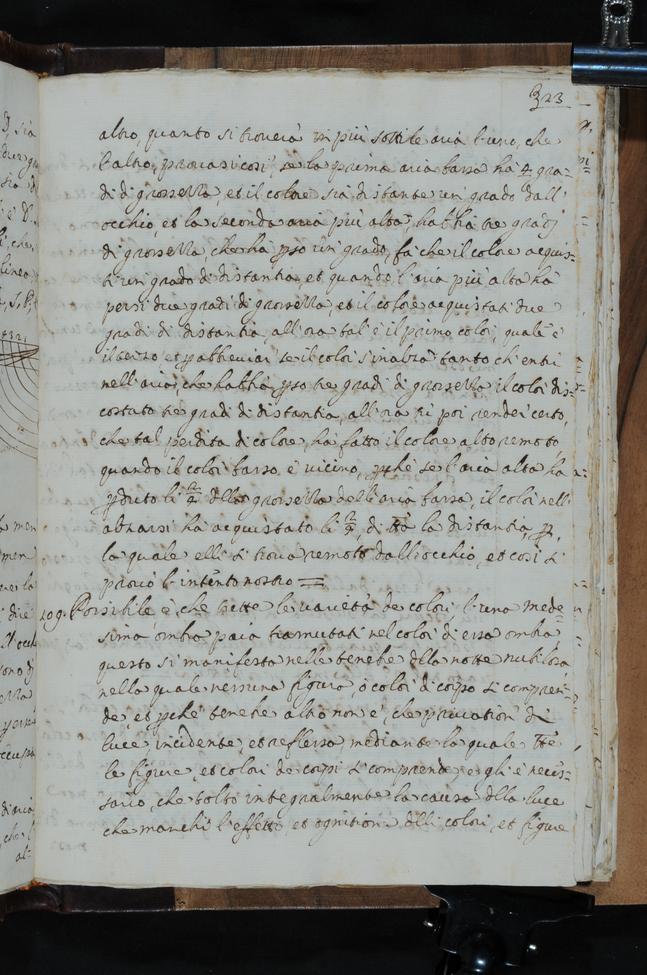 323
altro, quanto si trouerà in più sottile aria l'uno, che
l'altro, prouasi così, se la prima aria bassa ha 4 gra-
di di grossezza, et il colore sia distante un grado dall'
occhio, et la seconda aria più alta, habbia tre gradi
di grossezza, che ha pso un grado, fa che il colore acquis-
ti un grado di distantia, et quando l'aria più alta ha
persi due gradi di grossezza, et il colore acquistati due
gradi di distantia, all'ora tal è il primo color, quale è
il terzo et p abbreuiar se il color s'inalza tanto ch'entri
nell'aria, che habbia pso tre gradi di grossezza il color dis-
costato tre gradi di distantia, all'ora ti poi render certo,
che tal perdita di colore ha fatto il colore alto remoto,
quando il color basso, e vicino, pchè se l'aria alta ha
pduto li dlla grossezza dell'aria bassa, il color nell'
alzarsi ha acquistato li di tta la distantia, p
la quale elli si troua remoto dall'occhio, et così si
prouò l'intento nostro =
109. Possibile è che tutte le uarietà de colori, l'una mede-
sima ombra paia trasmutati nel color di essa ombra
questo si manifesta nelle tenebe dlla notte nubilosa
nella quale nessuna figura ò color di corpo si compren-
de et pchè tenebe altro non è, che priuation di
luce incidente, et reflessa, mediante la quale tte
le figure, et colori de corpi si comprende, egli è neces-
sario, che tolto integralmente la causa dlla luce
che manchi l'effetto, et cognition dlli colori, et figure